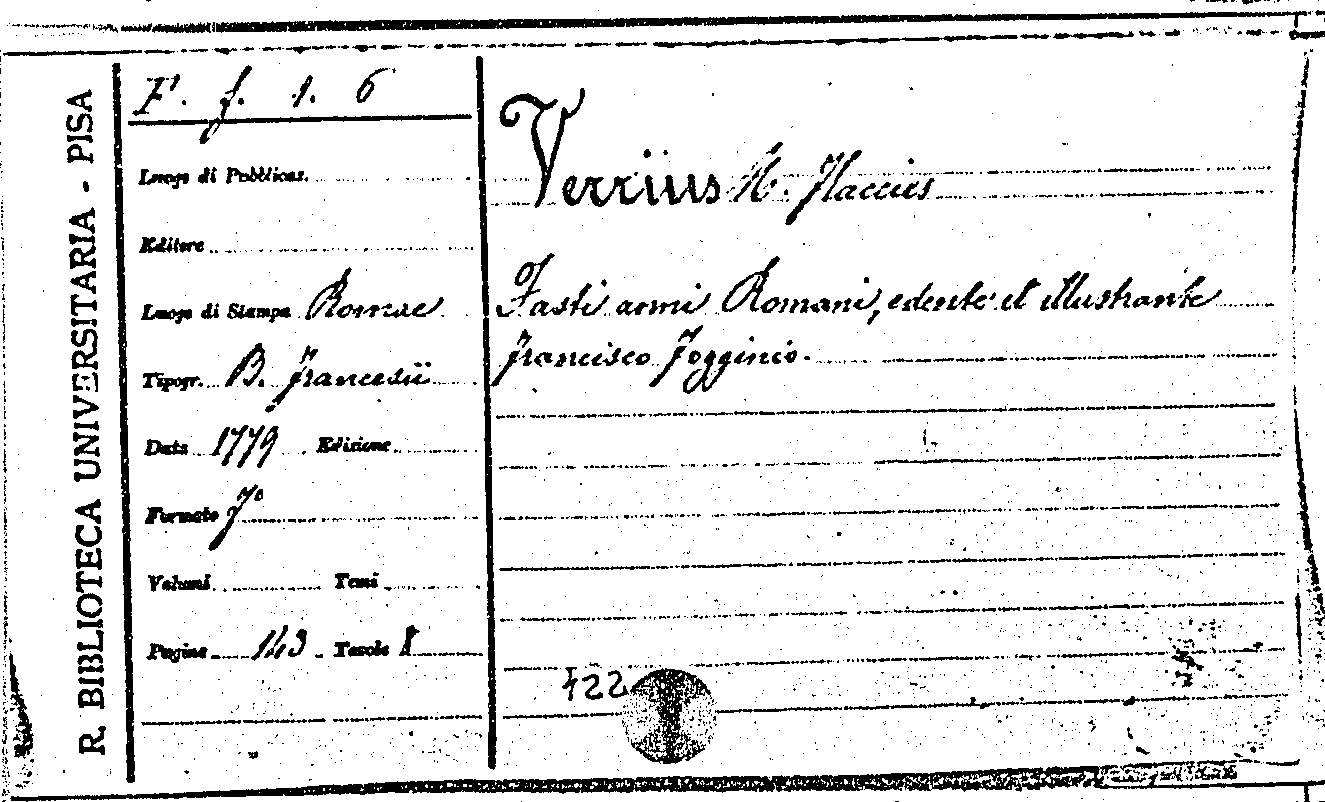 R. BIBLIOTECA UNIVERSITARIA - PISA
F. f. 1. 6
Luogo di Pubblicaz.
Editore
Luogo di Stampa Romae
Tipogr. B. Francesii
Data 1779 Edizione
Formato f°
Volumi Tomi
Pagine 143 Tavole
Verrius M. Flaccus
Fasti anni Romani, edente et illustrante
Francisco Fogginio.
422